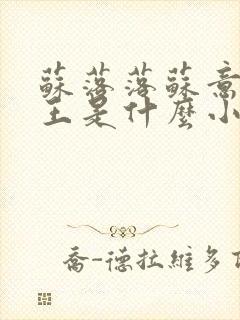 蘇落落蘇意
王是什麼小
喬-德拉維多